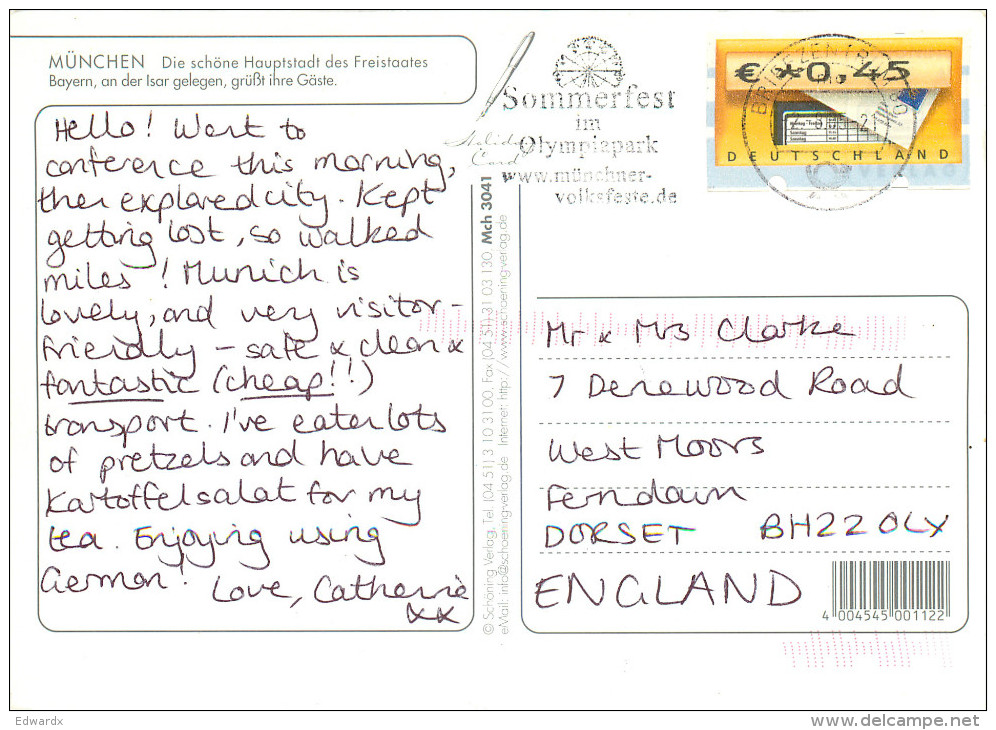 MÜNCHEN Die schöne Hauptstadt des Freistaates
Bayern, an der Isar gelegen, grüßt ihre Gäste.
Hello! Went to
conference this morning,
then explored city. Kept
getting lost, so walked
miles! Munich is
lovely, and very visitor-
friendly – safe & clean &
fantastic (cheap!!)
transport. I've eaten lots
of pretzels and have
Kartoffelsalat for my
tea. Enjoying using
German!
Love, Catherine
xx
Sommerfest
im
Olympiapark
www.münchner-
volksfeste.de
Holiday
Card
€ *0,45
DEUTSCHLAND
BRIEFZENTRUM
VERLAG
Mch 3041
© Schöning Verlag, Tel. (04 51) 3 10 31 00, Fax (04 51) 31 03 130
eMail: info@schoeningverlag.de Internet: http://www.schoeningverlag.de
Mr & Mrs Clarke
7 Denewood Road
West Moors
Ferndown
DORSET BH22 0LX
ENGLAND
4 004545 001122
Edwardx
www.delcampe.net